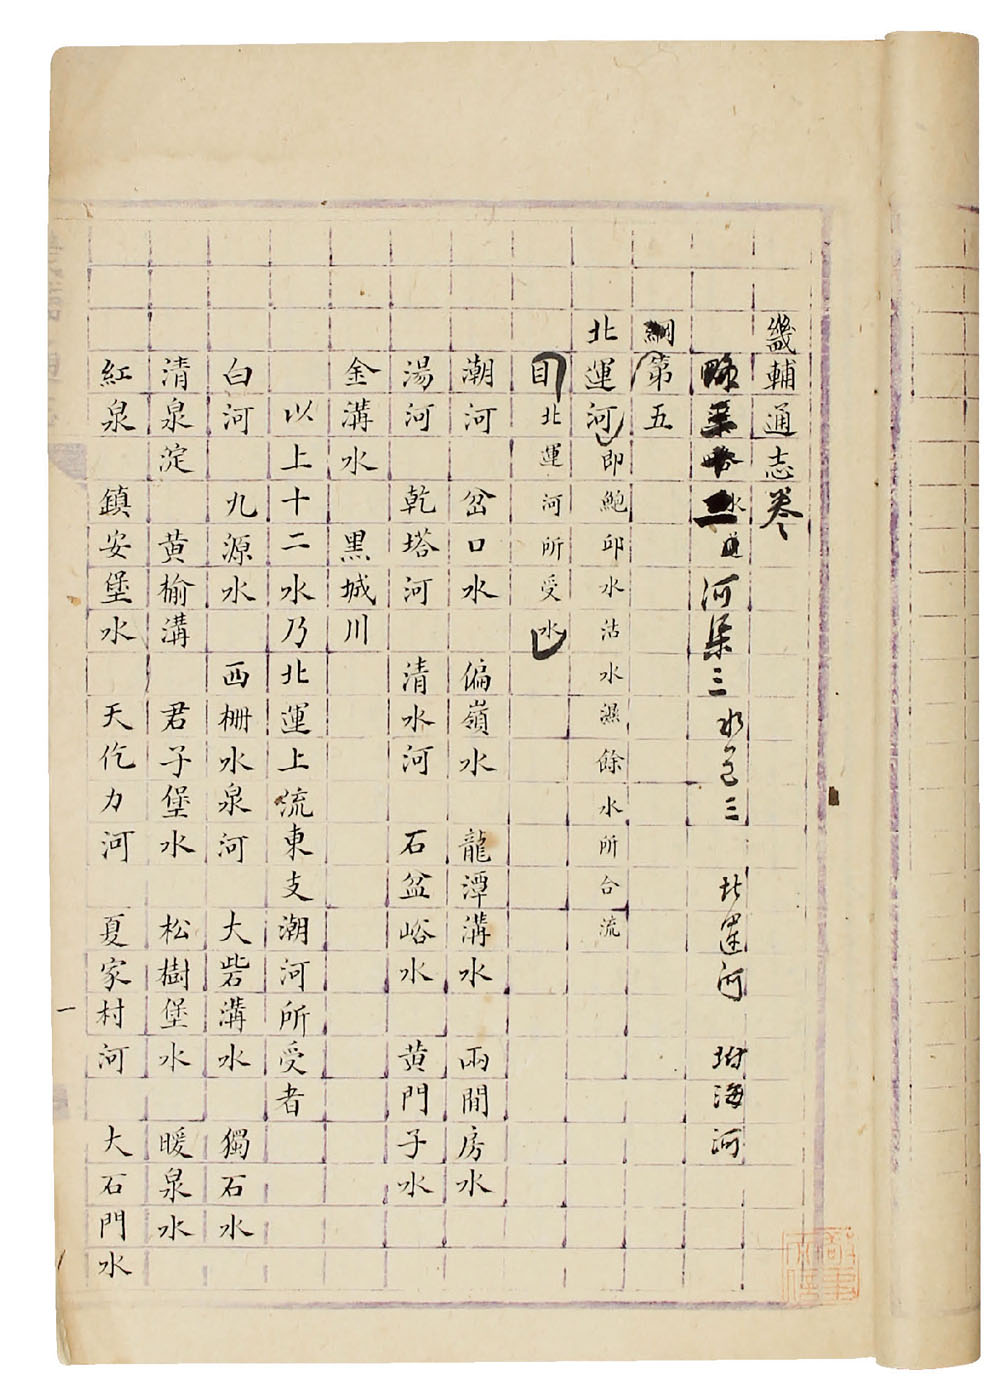 畿輔通志卷
略 水道 河渠三 水色三 北運河 附海河
綱第五
北運河即鮑邱水沽水濕餘水所合流
目北運河所受水
潮河 岔口水 偏嶺水 龍潭溝水 兩間房水
湯河 乾塔河 清水河 石盆峪水 黄門子水
金溝水 黑城川
以上十二水乃北運上流東支潮河所受者
白河 九源水 西柵水泉河 大砦溝水 獨石水
清泉淀 黄榆溝 君子堡水 松樹堡水 暖泉水
紅泉 鎮安堡水 天仡力河 夏家村河 大石門水
一